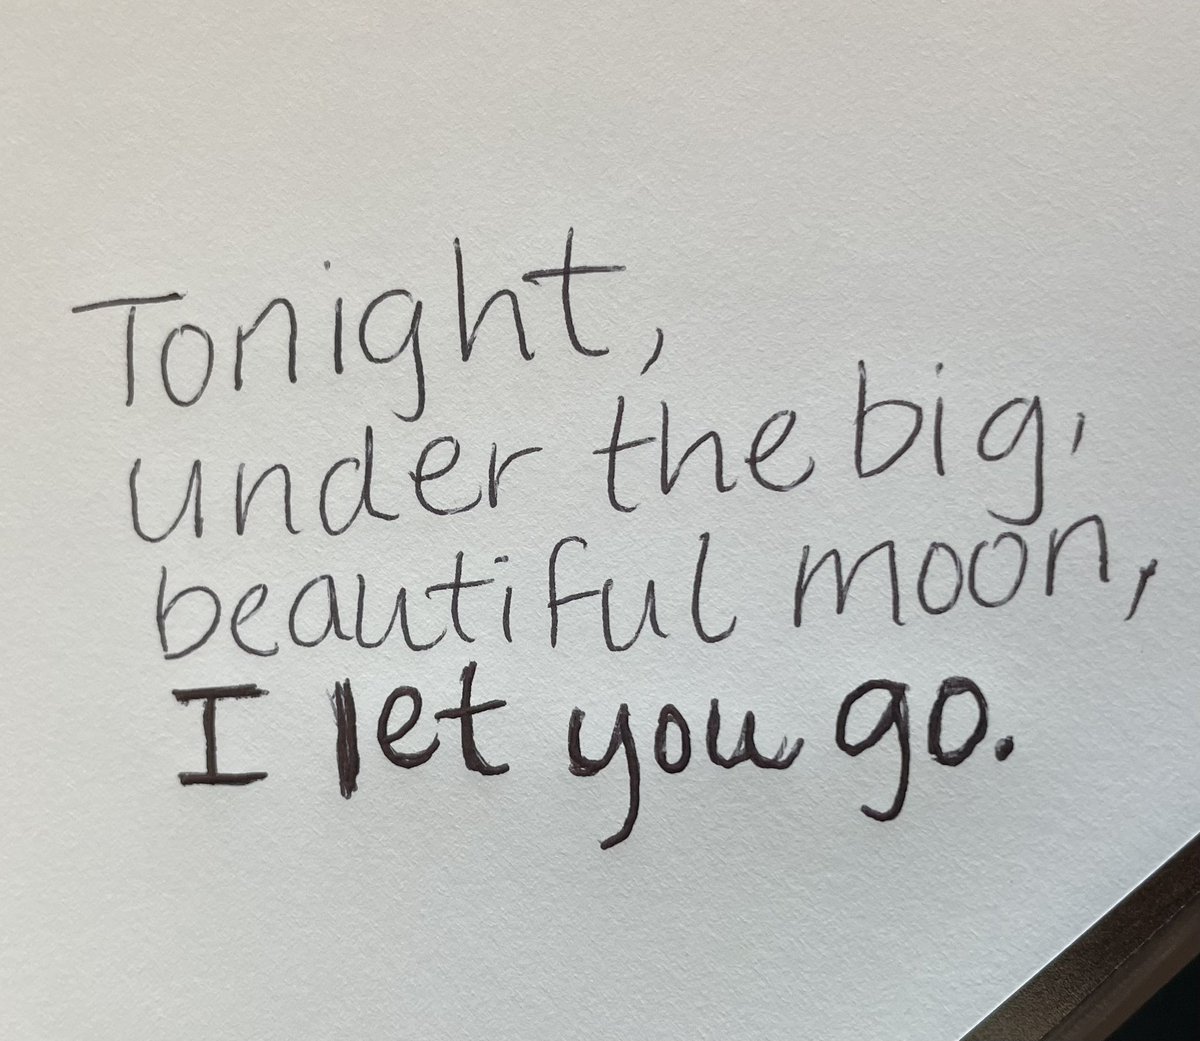 Tonight,
under the big,
beautiful moon,
I let you go.